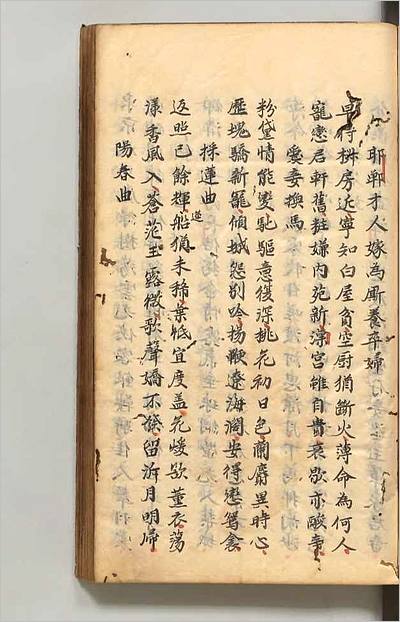 邯鄲才人嫁為廝養卒婦
早侍椒房近寧知白屋貧空厨猶斷火薄命為何人
寵戀君軒舊粧嫌內苑新深宮雖自貴哀歇亦酸辛
愛妾換馬
粉黛情能變馳驅意復深桃花初日色蘭麝異時心
歷塊驕新寵傾城怨別吟揚鞭遼海濶安得戀鴛衾
採蓮曲
返照已餘輝船猶未稀葉低宜度盖花煖欲薰衣蕩
漾香風入蒼茫玉露微歌聲嬌不倦留泝月明歸
陽春曲